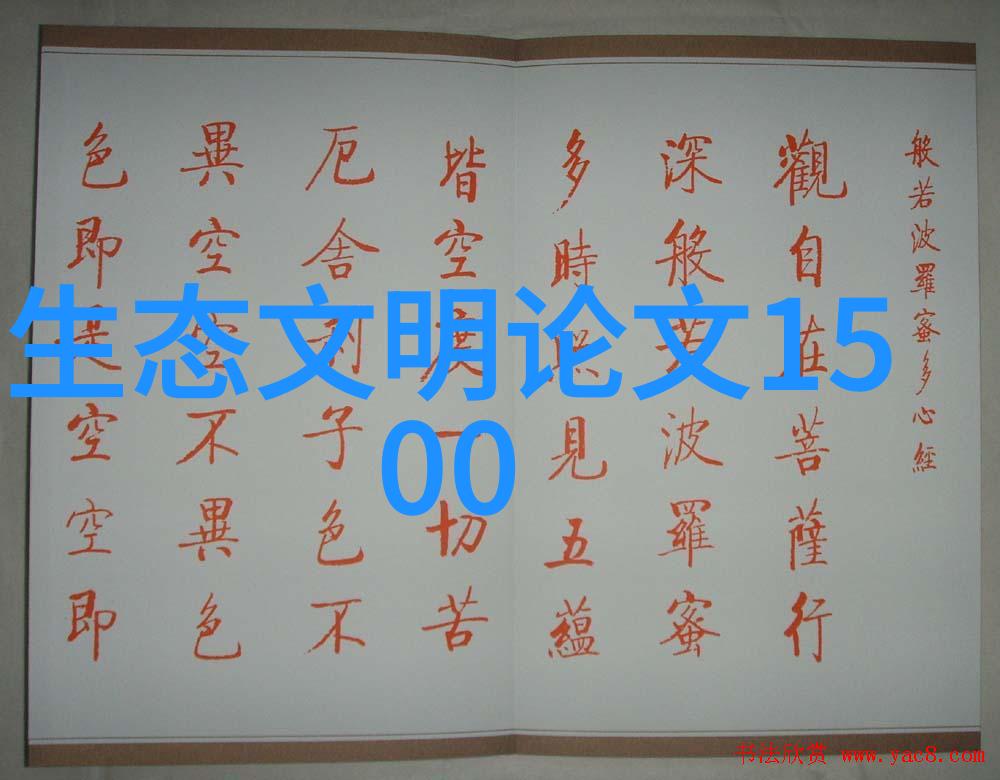 般若波羅蜜多心經
觀自在菩薩行
深般若波羅蜜
多時照見五蘊
皆空度一切苦
厄舍利子色不
異空空不異色
色即是空空即
生态文明论文15
00
书法欣赏 www.yac8.com